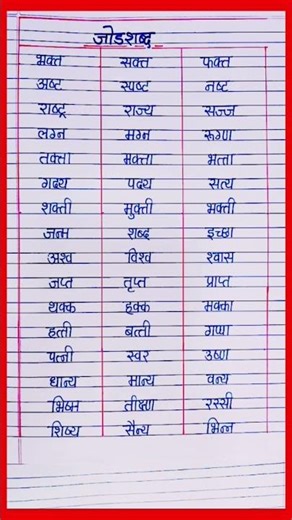 जोडशब्द
भक्त सक्त फक्त
अष्ट स्पष्ट नष्ट
राष्ट्र राज्य सज्ज
लग्न मग्न रुग्ण
तक्ता मक्ता भत्ता
गद्य पद्य सत्य
शक्ती मुक्ती भक्ती
जन्म शब्द इच्छा
अश्व विश्व श्वास
जप्त तृप्त प्राप्त
थक्क हक्क मक्का
हत्ती बत्ती गप्पा
पत्नी स्वर उष्ण
धान्य मान्य वन्य
भिष्म तीक्ष्ण रस्सी
शिष्य सैन्य भिन्न